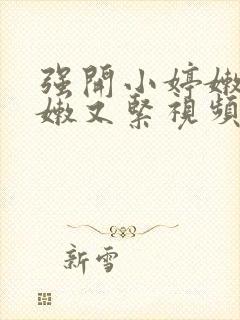 强開小婷嫩
嫩又緊視頻
新雪